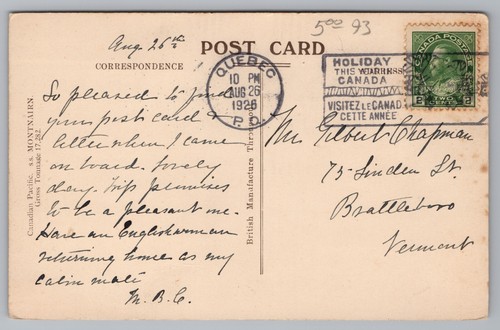 Aug 26th
5 00 93
POST CARD
CORRESPONDENCE
So pleased to find
your post card &
letter when I came
on board. Lovely
day. Trip promises
to be a pleasant one.
Have an Englishwoman
returning home as my
cabin mate
M.B.C.
Canadian Pacific. s.s. MONTNAIRN.
Gross Tonnage 17,282.
British Manufacture Throughout
QUEBEC
10 PM
AUG 26
1926
P.Q.
HOLIDAY
THIS YEAR IN
CANADA
VISITEZ LE CANADA
CETTE ANNÉE
CANADA POSTAGE
2 TWO CENTS 2
Mr Gilbert Chapman
75 Linden St.
Brattleboro
Vermont